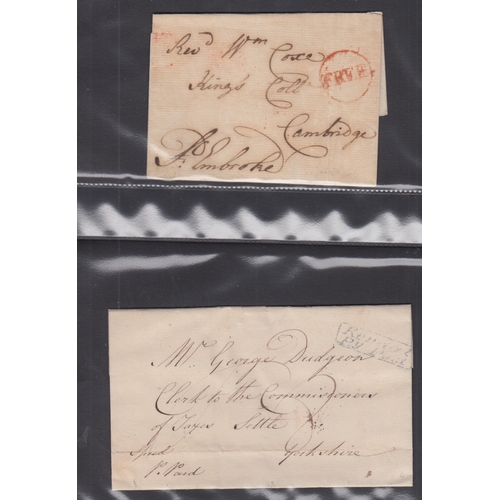 Revd Wm Coxe
FREE
King's Coll
Cambridge
Pembroke
Mr. George Dudgeon
Clerk to the Commissioners
of Taxes Settle
Yorkshire
Pt. Paid